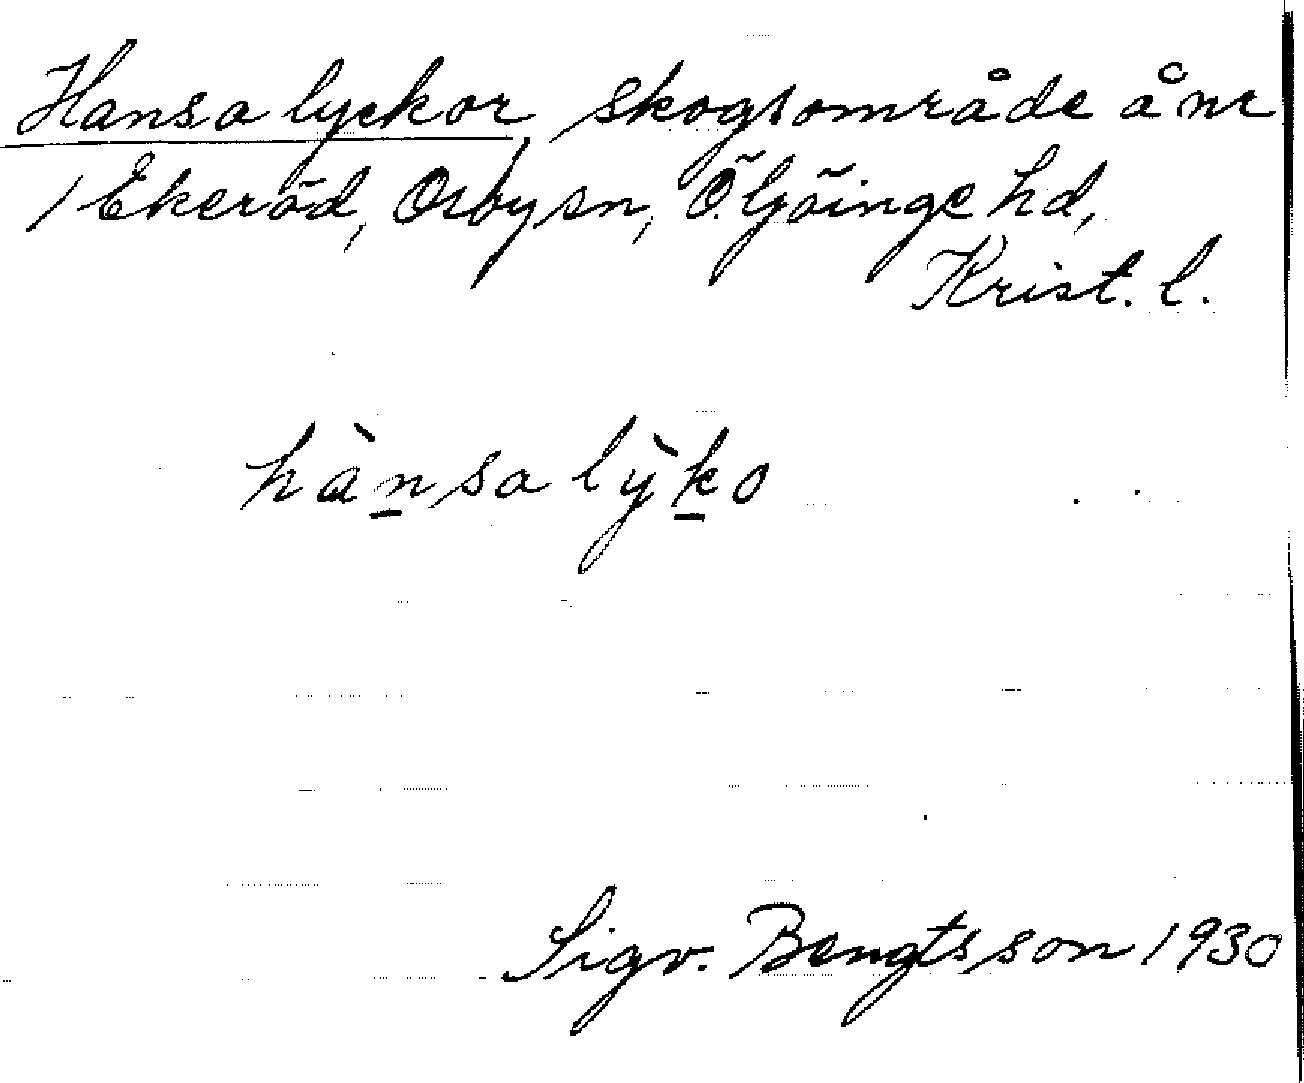 Hansa lyckor skogsområde å nr
1 Ekeröd, Osby sn, Ö. Göinge hd,
Krist. l.
hànsa lỳko
Sigv. Bengtsson 1930